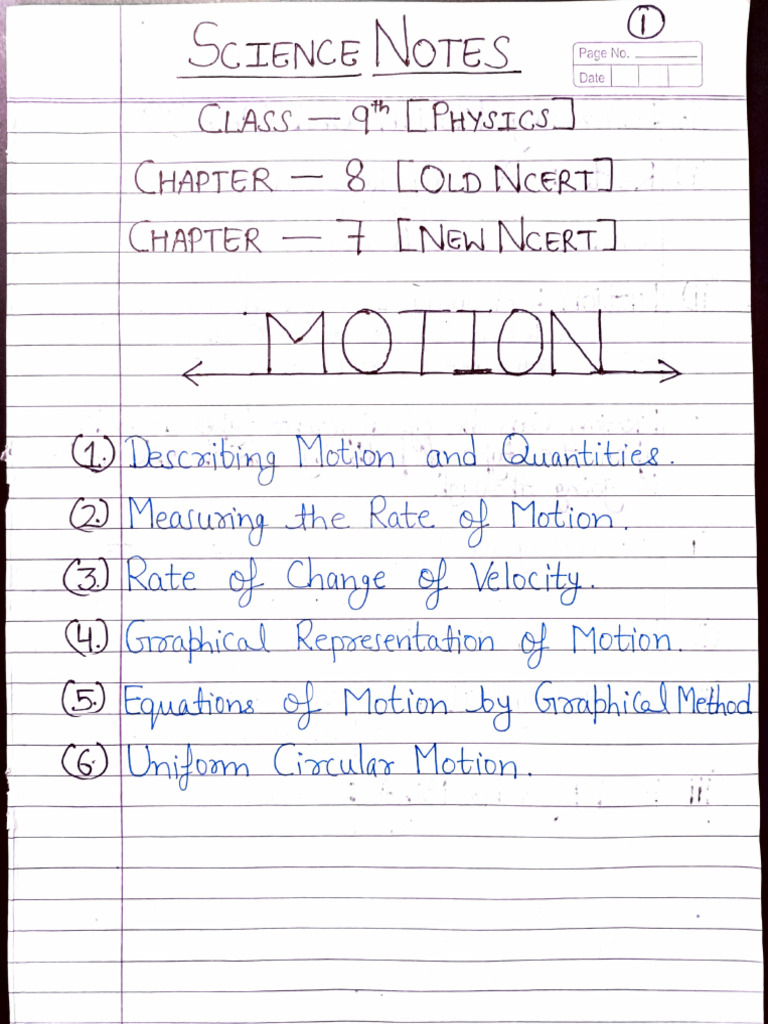 ①
SCIENCE NOTES
Page No.
Date
CLASS — 9th [PHYSICS]
CHAPTER — 8 [OLD NCERT]
CHAPTER — 7 [NEW NCERT]
MOTION
(1.) Describing Motion and Quantities.
(2.) Measuring the Rate of Motion.
(3.) Rate of Change of Velocity.
(4.) Graphical Representation of Motion.
(5.) Equations of Motion by Graphical Method
(6.) Uniform Circular Motion.